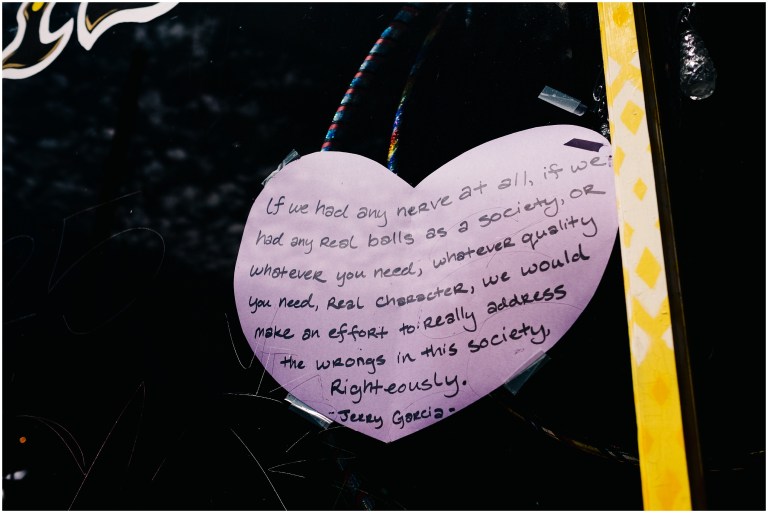 If we had any nerve at all, if we
had any real balls as a society, or
whatever you need, whatever quality
you need, real character, we would
make an effort to really address
the wrongs in this society,
Righteously.
-Jerry Garcia-